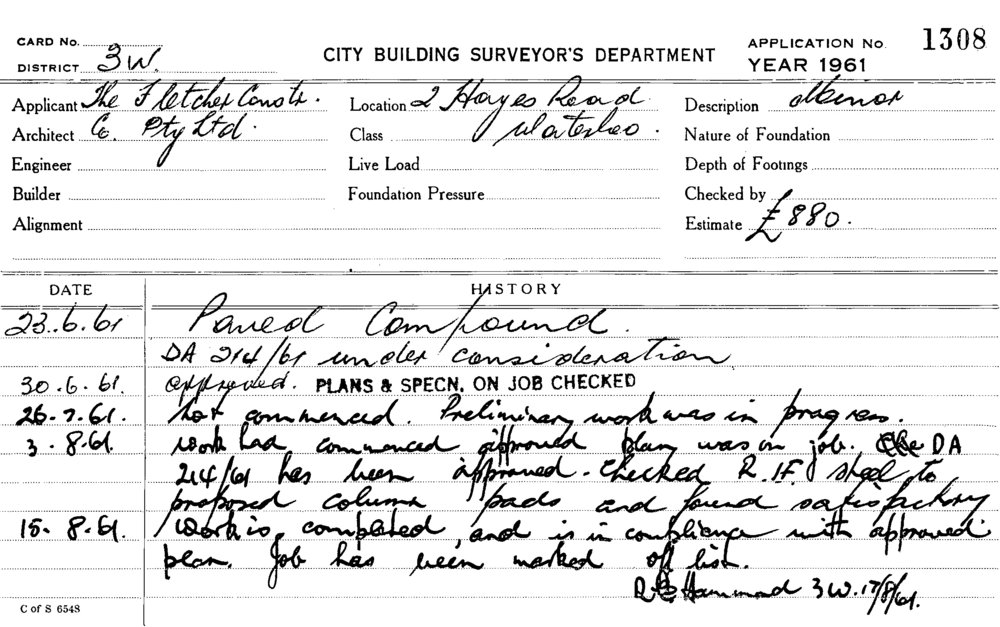 CARD No.
DISTRICT 3W.
CITY BUILDING SURVEYOR'S DEPARTMENT
APPLICATION No. 1308
YEAR 1961
Applicant The Fletcher Constr.
Location 2 Hayes Road
Description Minor
Architect Co. Pty Ltd.
Class Waterloo.
Nature of Foundation
Engineer
Live Load
Depth of Footings
Builder
Foundation Pressure
Checked by
Alignment
Estimate £880.
DATE HISTORY
23.6.61 Paved Compound.
DA 214/61 under consideration
30.6.61. approved. PLANS & SPECN, ON JOB CHECKED
26.7.61. Not commenced. Preliminary work was in progress.
3.8.61. Work had commenced approved plan was on job. The DA
214/61 has been approved. Checked R.IF. steel to
proposed column pads and found satisfactory
15.8.61. Work is completed, and is in compliance with approved
plan. Job has been marked off list.
Hammond 3W. 17/8/61.
C of S 6548